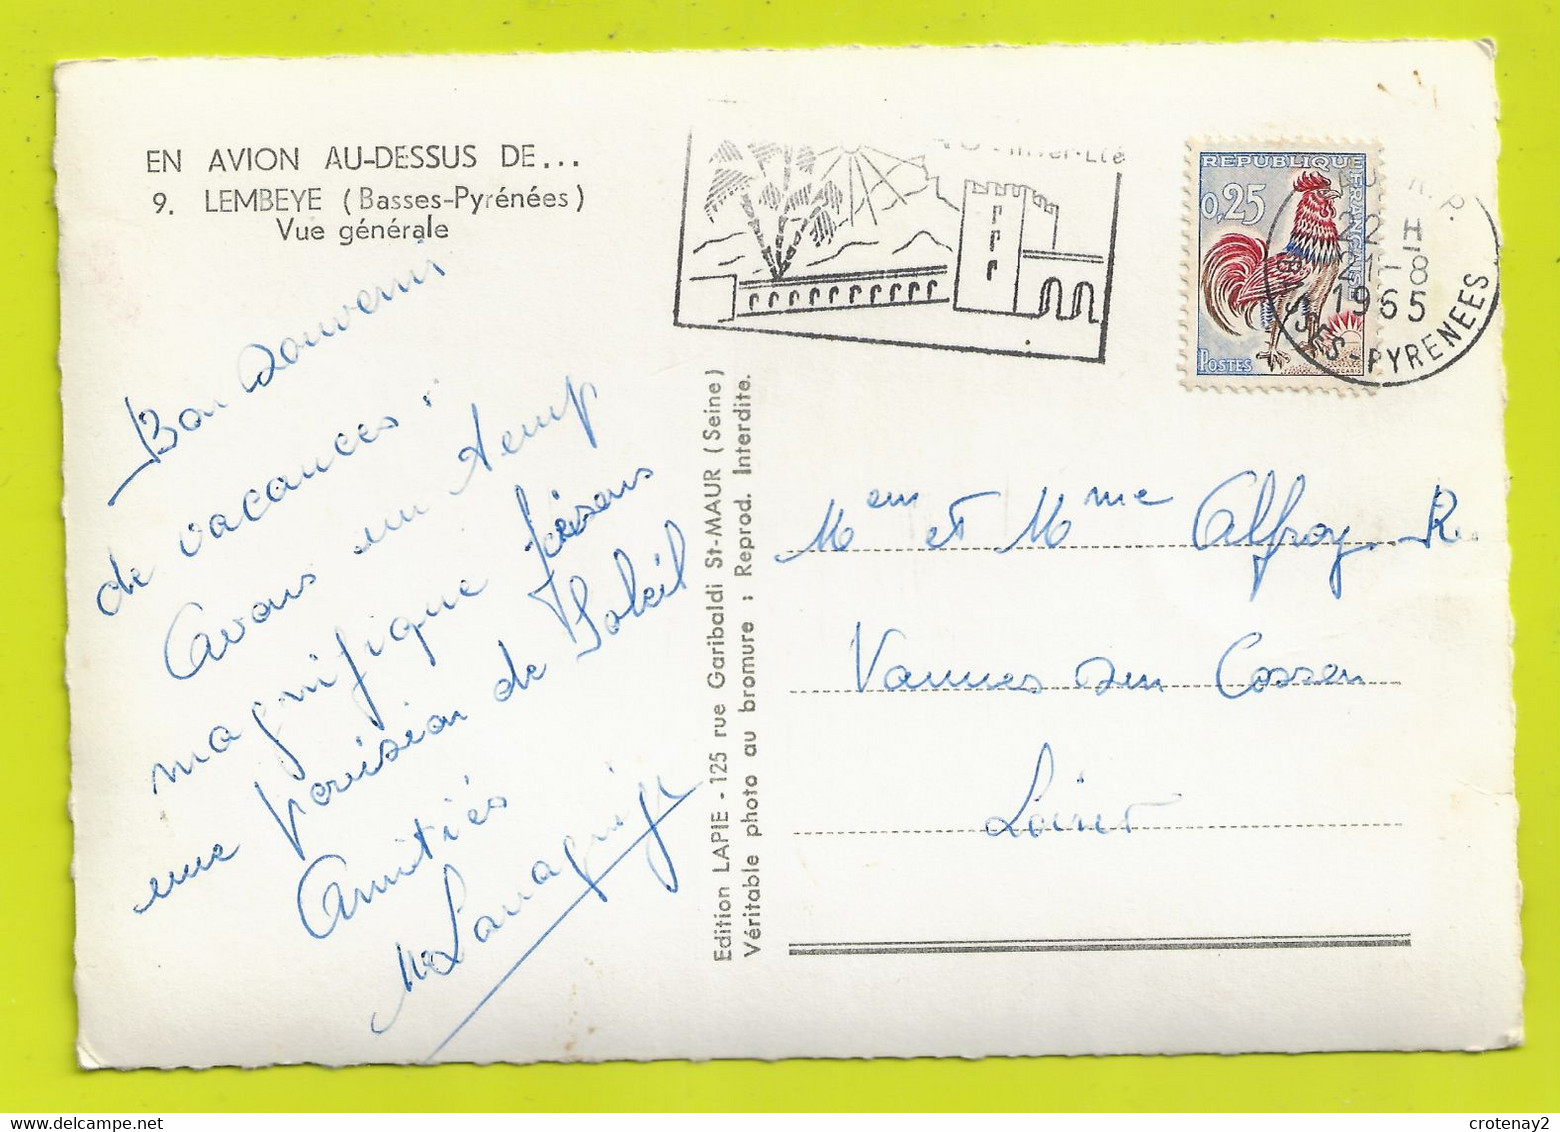 EN AVION AU-DESSUS DE...
9. LEMBEYE (Basses-Pyrénées)
Vue générale
Bon Souvenir
de vacances.
Avons un temp
magnifique faisons
une provision de Soleil
Amitiés
Edition LAPIE - 125 rue Garibaldi St-MAUR (Seine)
Véritable photo au bromure : Reprod. Interdite.
REPUBLIQUE FRANÇAISE
0,25
POSTES
22 H
21-8
1965
BASSES-PYRENEES
Mem et Mme Alfroy. R.
Vannes sur Cosson
Loiret
crotenay2